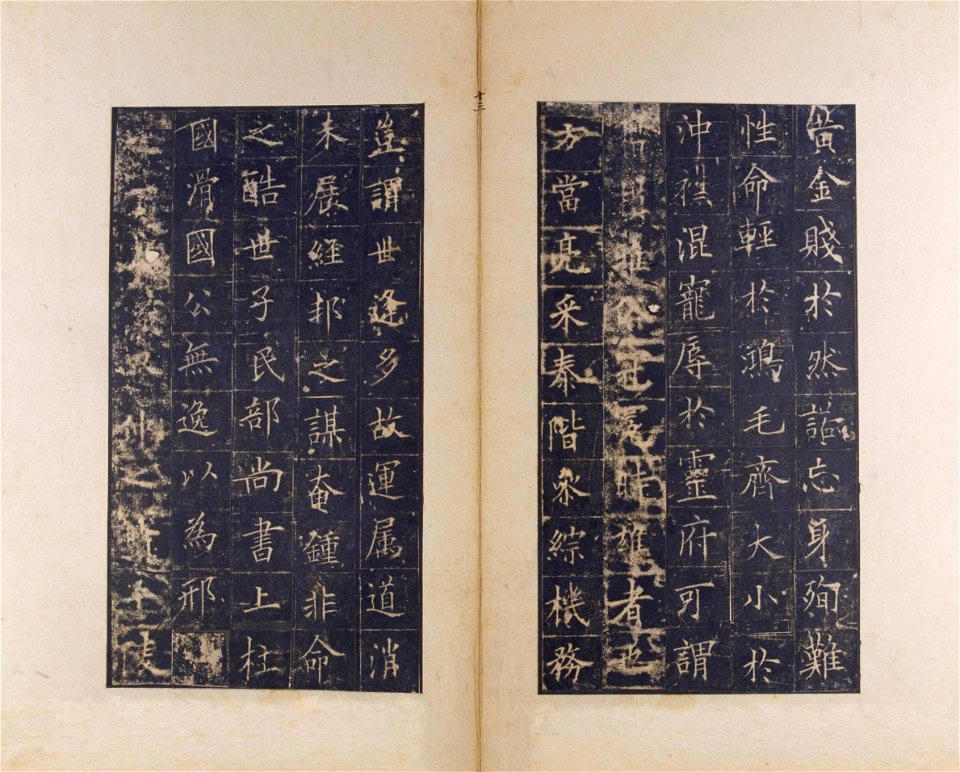 黃金賤於然諾忘身殉難
性命輕於鴻毛齊大小於
沖襟混寵辱於靈府可謂
雅俗冠冕時雄者也
方當亮采泰階參綜機務
十三
豈謂世逢多故運属道消
未展經邦之謀奄鍾非命
之酷世子民部尚書上柱
國滑國公無逸以為邢
仲之